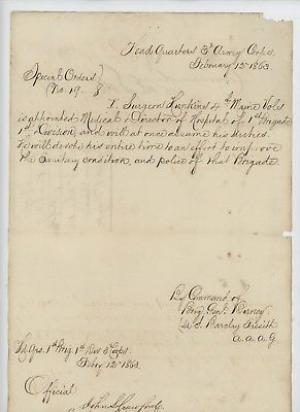 Head Quarters 3d Army Corps
February 12th 1863.
Special Orders
No. 19.
I. Surgeon Hawkins 4th Maine Vols
is appointed Medical Director of Hospital of 1st Brigade
1st Division, and will at once assume his duties.
He will devote his entire time to an effort to improve
the Sanitary condition, and police of that Brigade
By Command of
Brig. Genl. Birney
A.A.A.G
Hd. Qrs. 1st Brig 1st Div 3 Corps
Feby 12th 1863.
Official